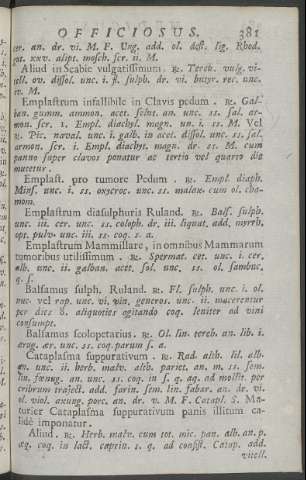 OFFICIOSUS. 381
cer. an. dr. vi. M. F. Ung. add. ol. dest. lig. Rhod.
got. xxv. alipt. mosch. scr. ii. M.
Aliud in Scabie vulgatissimum. ℞. Tereb. vulg. vi-
tell. ov. dissol. unc. i. fl. sulph. dr. vi. butyr. rec. unc.
iv. M.
Emplastrum infallibile in Clavis pedum. ℞. Gal-
ban. gumm. ammon. acet. solut. an. unc. ss. sal. ar-
mon. scr. 1. Empl. diachyl. magn. un. i. ss. M Vel
℞. Pic. naval. unc. i. galb. in acet. dissol. unc. ss. sal.
armon. scr. i. Empl. diachyt. magn. dr. ss. M. cum
panno super clavos ponatur ac tertio vel quarto die
mutetur.
Emplast. pro tumore Pedum. ℞. Empl. diaph.
Mins. unc. i. ss. oxycroc. unc. ss. malax. cum ol. cha-
mom.
Emplastrum diasulphuris Ruland. ℞. Bals. sulph.
unc. iii. cer. unc. ss. coloph. dr. iii. liquat. add. myrrh.
opt. pulv. unc. iii. ss. coq. s. a.
Emplastrum Mammillare, in omnibus Mammarum
tumoribus utilissimum. ℞. Spermat. cet. unc. i. cer.
alb. unc. ii. galban. acet. sol. unc. ss. ol. sambuc.
q. s.
Balsamus sulph. Ruland. ℞. Fl. sulph. unc. i. ol.
nuc. vel rap. unc. vi. vin. generos. unc. ii. macerentur
per dies 8. aliquoties agitando coq. leniter ad vini
consumpt.
Balsamus scolopetarius. ℞. Ol. lin. tereb. an. lib. i.
ærug. ær. unc. ss. coq. parum s. a.
Cataplasma suppurativum. ℞. Rad. alth. lil. alb.
an. unc. ii. herb. malv. alth. pariet. an. m. ss. sem.
lin. fænug. an. unc. ss. coq. in s. q. aq. ad mollit. per
cribrum traject. add. farin. sem. lin. fabar. an. dr. vi.
ol. viol. axung. porc. an. dr. v. M. F. Catapl. S. Ma-
turier Cataplasma suppurativum panis illitum ca-
lidè imponatur.
Aliud. ℞. Herb. malv. cum tot. mic. pan. alb. an. p.
æq. coq. in lact. caprin. s. q. ad consist. Catap. add.
vitell.